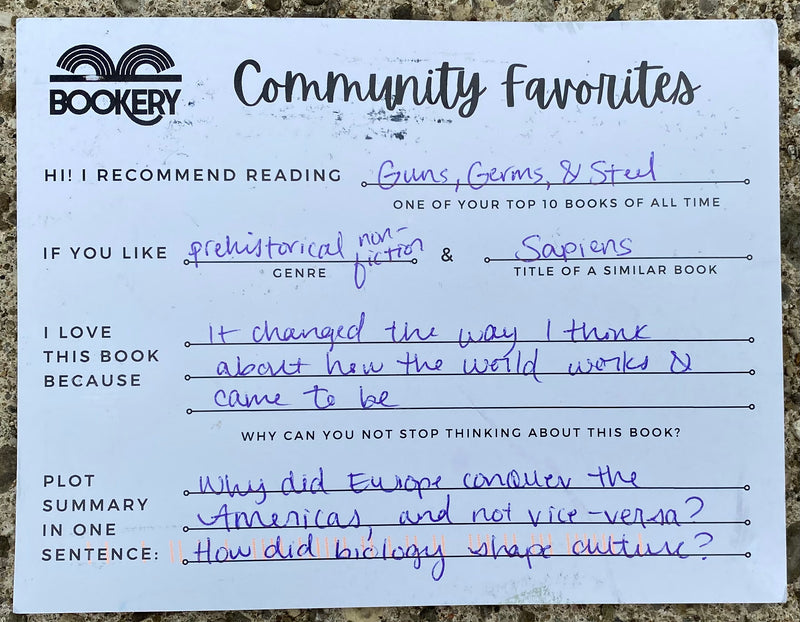 BOOKERY
Community Favorites
HI! I RECOMMEND READING Guns, Germs, & Steel
ONE OF YOUR TOP 10 BOOKS OF ALL TIME
IF YOU LIKE prehistorical non-fiction & Sapiens
GENRE TITLE OF A SIMILAR BOOK
I LOVE THIS BOOK BECAUSE It changed the way I think
about how the world works &
came to be
WHY CAN YOU NOT STOP THINKING ABOUT THIS BOOK?
PLOT SUMMARY IN ONE SENTENCE: Why did Europe conquer the
Americas, and not vice-versa?
How did biology shape culture?